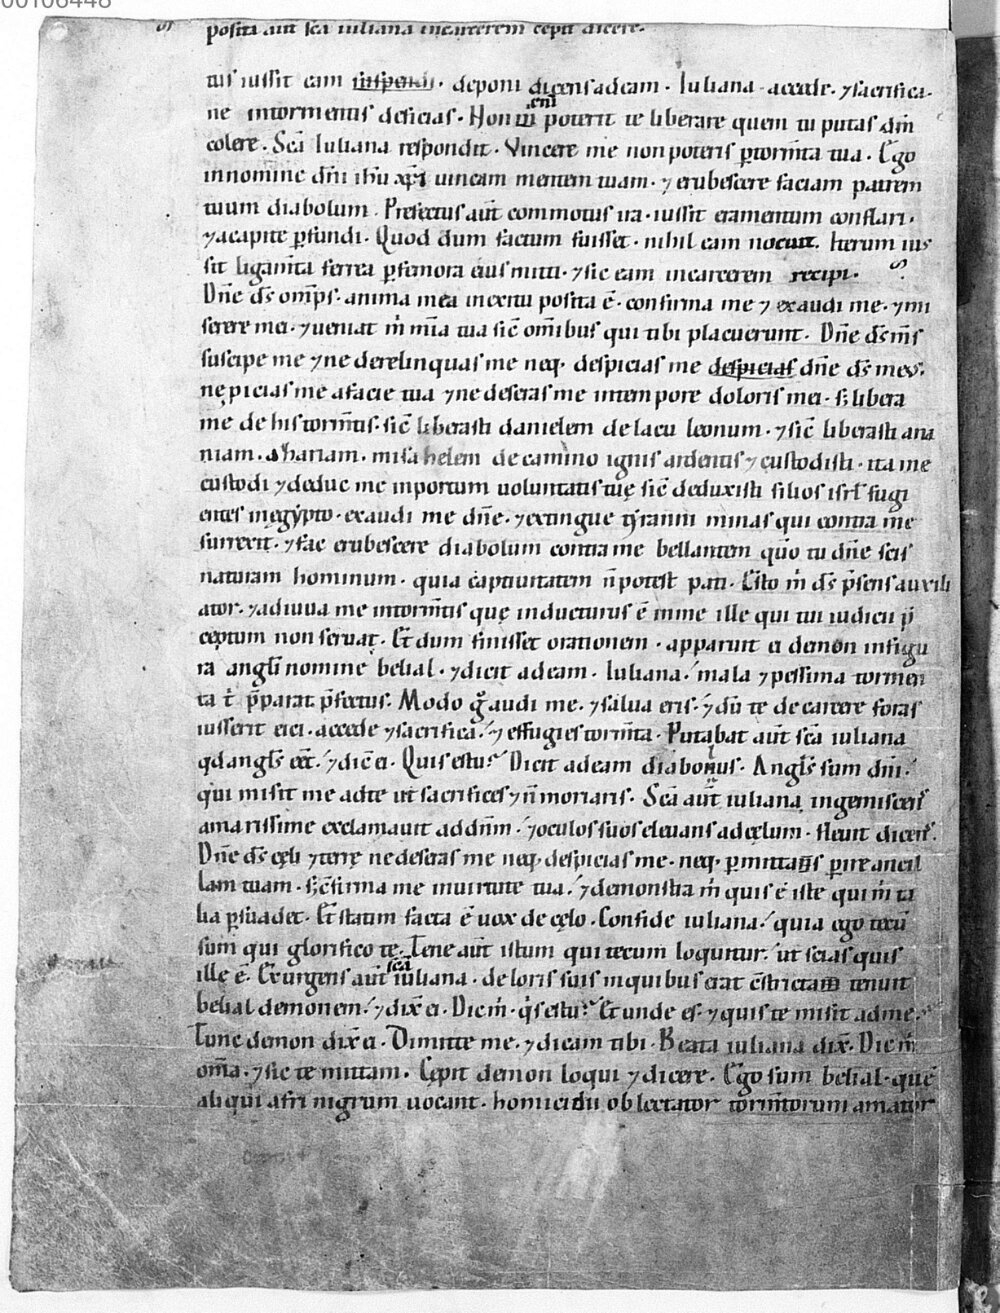 00106448
posita aut̄ sc̄a iuliana incarcerem cepit dicere.
tus iussit eam suspendi. deponi dicens adeam. Iuliana accede. ⁊sacrifica.
ne intormentis deficias. Non enī poterit te liberare quem tu putas dm̄
colere. Sc̄a Iuliana respondit. Vincere me non poteris ꝑtorm̄ta tua. Ego
innomine dn̄i ihū xp̄i uincam mentem tuam. ⁊ erubescere faciam patrem
tuum diabolum. Prefectus aut̄ commotus ira. iussit eramentum conflari.
⁊acapite ꝑfundi. Quod dum factum fuisset. nihil eam nocuit. Iterum ius
sit ligam̄ta ferrea ꝑfemora eius mitti. ⁊sic eam incarcerem recipi.
Dn̄e ds̄ om̄ps. anima mea inexitu posita ē. confirma me ⁊ exaudi me. ⁊mi
serere mei. ⁊ueniat m̄ mīa tua sic̄ om̄ibus qui tibi placuerunt. Dn̄e ds̄ m̄s
suscipe me ⁊ne derelinquas me neq. despicias me despicias dn̄e ds̄ meus.
nępicias me afacie tua ⁊ne deseras me intempore doloris mei. s; libera
me de his torm̄tis. sic̄ liberasti danielem de lacu leonum. ⁊sic̄ liberasti ana
niam. ahariam. misahelem de camino ignis ardentis ⁊ custodisti. ita me
custodi ⁊deduc me inportum uoluntatis tuę sic̄ deduxisti filios isrl̄ fugi
entes inęgypto. exaudi me dn̄e. ⁊extingue tyranni minas qui contra me
surrexit. ⁊fac erubescere diabolum contra me bellantem quo tu dn̄e scis
naturam hominum. quia captiuitatem n̄ potest pati. Esto m̄ ds̄ p̄sens auxili
ator. ⁊adiuua me intorm̄tis quę inducturus ē inme ille qui tui iudicii p̄
ceptum non seruat. Et dum finisset orationem. apparuit ei demon infigu
ra angl̄i nomine belial. ⁊dicit adeam. Iuliana. mala ⁊pessima tormen
ta t̄ p̄parat p̄fectus. Modo gaudi me. ⁊salua eris. ⁊dū te de carcere foras
iusserit eici. accede ⁊sacrifica. ⁊ effugies torm̄ta. Putabat aut̄ sc̄a iuliana
qd angl̄s eēt. ⁊dic̄ ei. Quis es tu? Dicit adeam diabolus. Angl̄s sum dn̄i.
qui misit me adte ut sacrifices ⁊ n̄ moriaris. Sc̄a aut̄ iuliana ingemiscens
amarissime exclamauit addn̄m. ⁊oculos suos eleuans adcęlum. fleuit dicens.
Dn̄e ds̄ cęli ⁊terrę ne deseras me neq. despicias me. neq. ꝑmittas ꝑire ancil
lam tuam. s; c̄firma me inuirtute tua. ⁊demonstra m̄ quis ē iste qui m̄ ta
lia ꝑsuadet. Et statim facta ē uox de cęlo. Confide iuliana. quia ego tecū
sum qui glorifico te. Tene aut̄ istum qui tecum loquitur. ut scias quis
ille ē. Exurgens aut̄ sc̄a iuliana. de loris suis inquibus erat c̄stricta tenuit
belial demonem. ⁊ dix̄ ei. Dic m̄. qs es tu? Et unde es. ⁊ quis te misit adme.
Tunc demon dix̄ ei. Dimitte me. ⁊ dicam tibi. Beata iuliana dix̄. Dic m̄
om̄a. ⁊sic te mittam. Cępit demon loqui ⁊ dicere. Ego sum belial. quē
aliqui afri nigrum uocant. homicidii oblectator torm̄torum amator